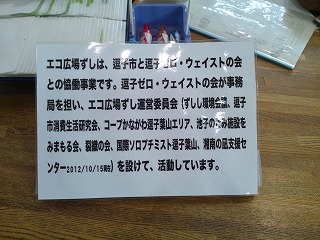 エコ広場ずしは、逗子市と逗子ゼロ・ウェイストの会
との協働事業です。逗子ゼロ・ウェイストの会が事務
局を担い、エコ広場ずし運営委員会(ずしし環境会議、逗子
市消費生活研究会、コープかながわ逗子葉山エリア、池子のごみ施設を
みまもる会、裂織の会、国際ソロプチミスト逗子葉山、湘南の凪支援セ
ンター2012/10/15現在)を設けて、活動しています。